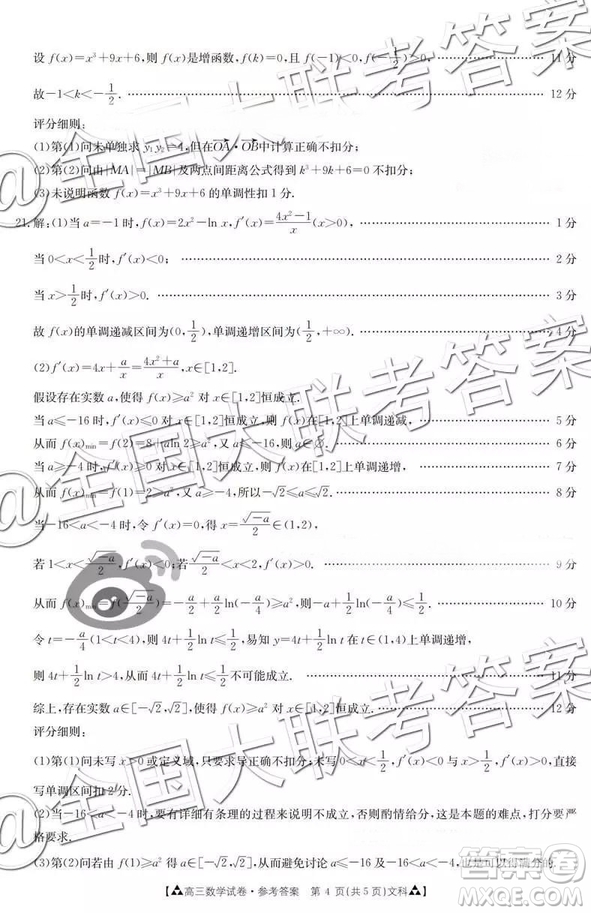 设 f(x)=x³+9x+6,则 f(x)是增函数,f(k)=0,且 f(-1)<0,f(-1/2)>0, 11 分
故-1<k<-1/2. 12 分
评分细则:
(1)第(1)问未单独求 y₁y₂=4,但在OA·OB中计算正确不扣分;
(2)第(2)问由|MA|=|MB|及两点间距离公式得到 k³+9k+6=0不扣分;
(3)未说明函数 f(x)=x³+9x+6 的单调性扣 1 分.
21.解:(1)当a=-1 时,f(x)=2x²-ln x,f′(x)=(4x²-1)/x(x>0), 1 分
当 0<x<1/2时,f′(x)<0. 2 分
当 x>1/2时,f′(x)>0. 3 分
故 f(x)的单调递减区间为(0,1/2),单调递增区间为(1/2,+∞). 4 分
(2)f′(x)=4x+a/x=(4x²+a)/x,x∈[1,2].
假设存在实数 a,使得 f(x)≥a² 对 x∈[1,2]恒成立.
当 a≤-16 时,f′(x)≤0 对 x∈[1,2]恒成立,则 f(x)在[1,2]上单调递减, 5 分
从而 f(x)min=f(2)=8+aln 2≥a²,a∈∅. 6 分
当 a≥-4 时,f′(x)≥0 对 x∈[1,2]恒成立,则 f(x)在[1,2]上单调递增, 7 分
从而 f(x)min=f(1)=2≥a²,又 a≥-4,-√2≤a≤√2. 8 分
当-16<a<-4 时,令 f′(x)=0,得 x=√-a/2∈(1,2),
若 1<x<√-a/2,f′(x)<0;若√-a/2<x<2,f′(x)>0. 9 分
从而 f(x)min=f(√-a/2)=-a/2+a/2ln(-a/4)≥a²,即-a+1/2ln(-a/4)≥1/2. 10 分
令 t=-a/4(1<t<4),则 4t+1/2ln t≤1/2,易知 y=4t+1/2ln t 在 t∈(1,4)上单调递增,
则 4t+1/2ln t>4,从而 4t+1/2ln t≤1/2不可能成立. 11 分
综上,存在实数 a∈[-√2,√2],使得 f(x)≥a² 对 x∈[1,2]恒成立. 12 分
评分细则:
(1)第(1)问未写 x>0或定义域,只要写出的范围正确不扣分,未写 0<x<1/2,f′(x)<0与 x>1/2,f′(x)>0,直接
写单调区间扣 2 分.
(2)当-16<a<-4 时,要有详细有条理的过程来说明不成立,否则酌情给分,这是本题的难点,打分要严
格要求.
(3)第(2)问若由 f(1)≥a² 得 a∈[-√2,√2],从而避免讨论 a≤-16 及-16<a<-4,也是可以得满分的.
高三数学试卷·参考答案 第 4 页(共 5 页)文科
@全国大联考答案
@全国大联考答案
@全国大联考答案